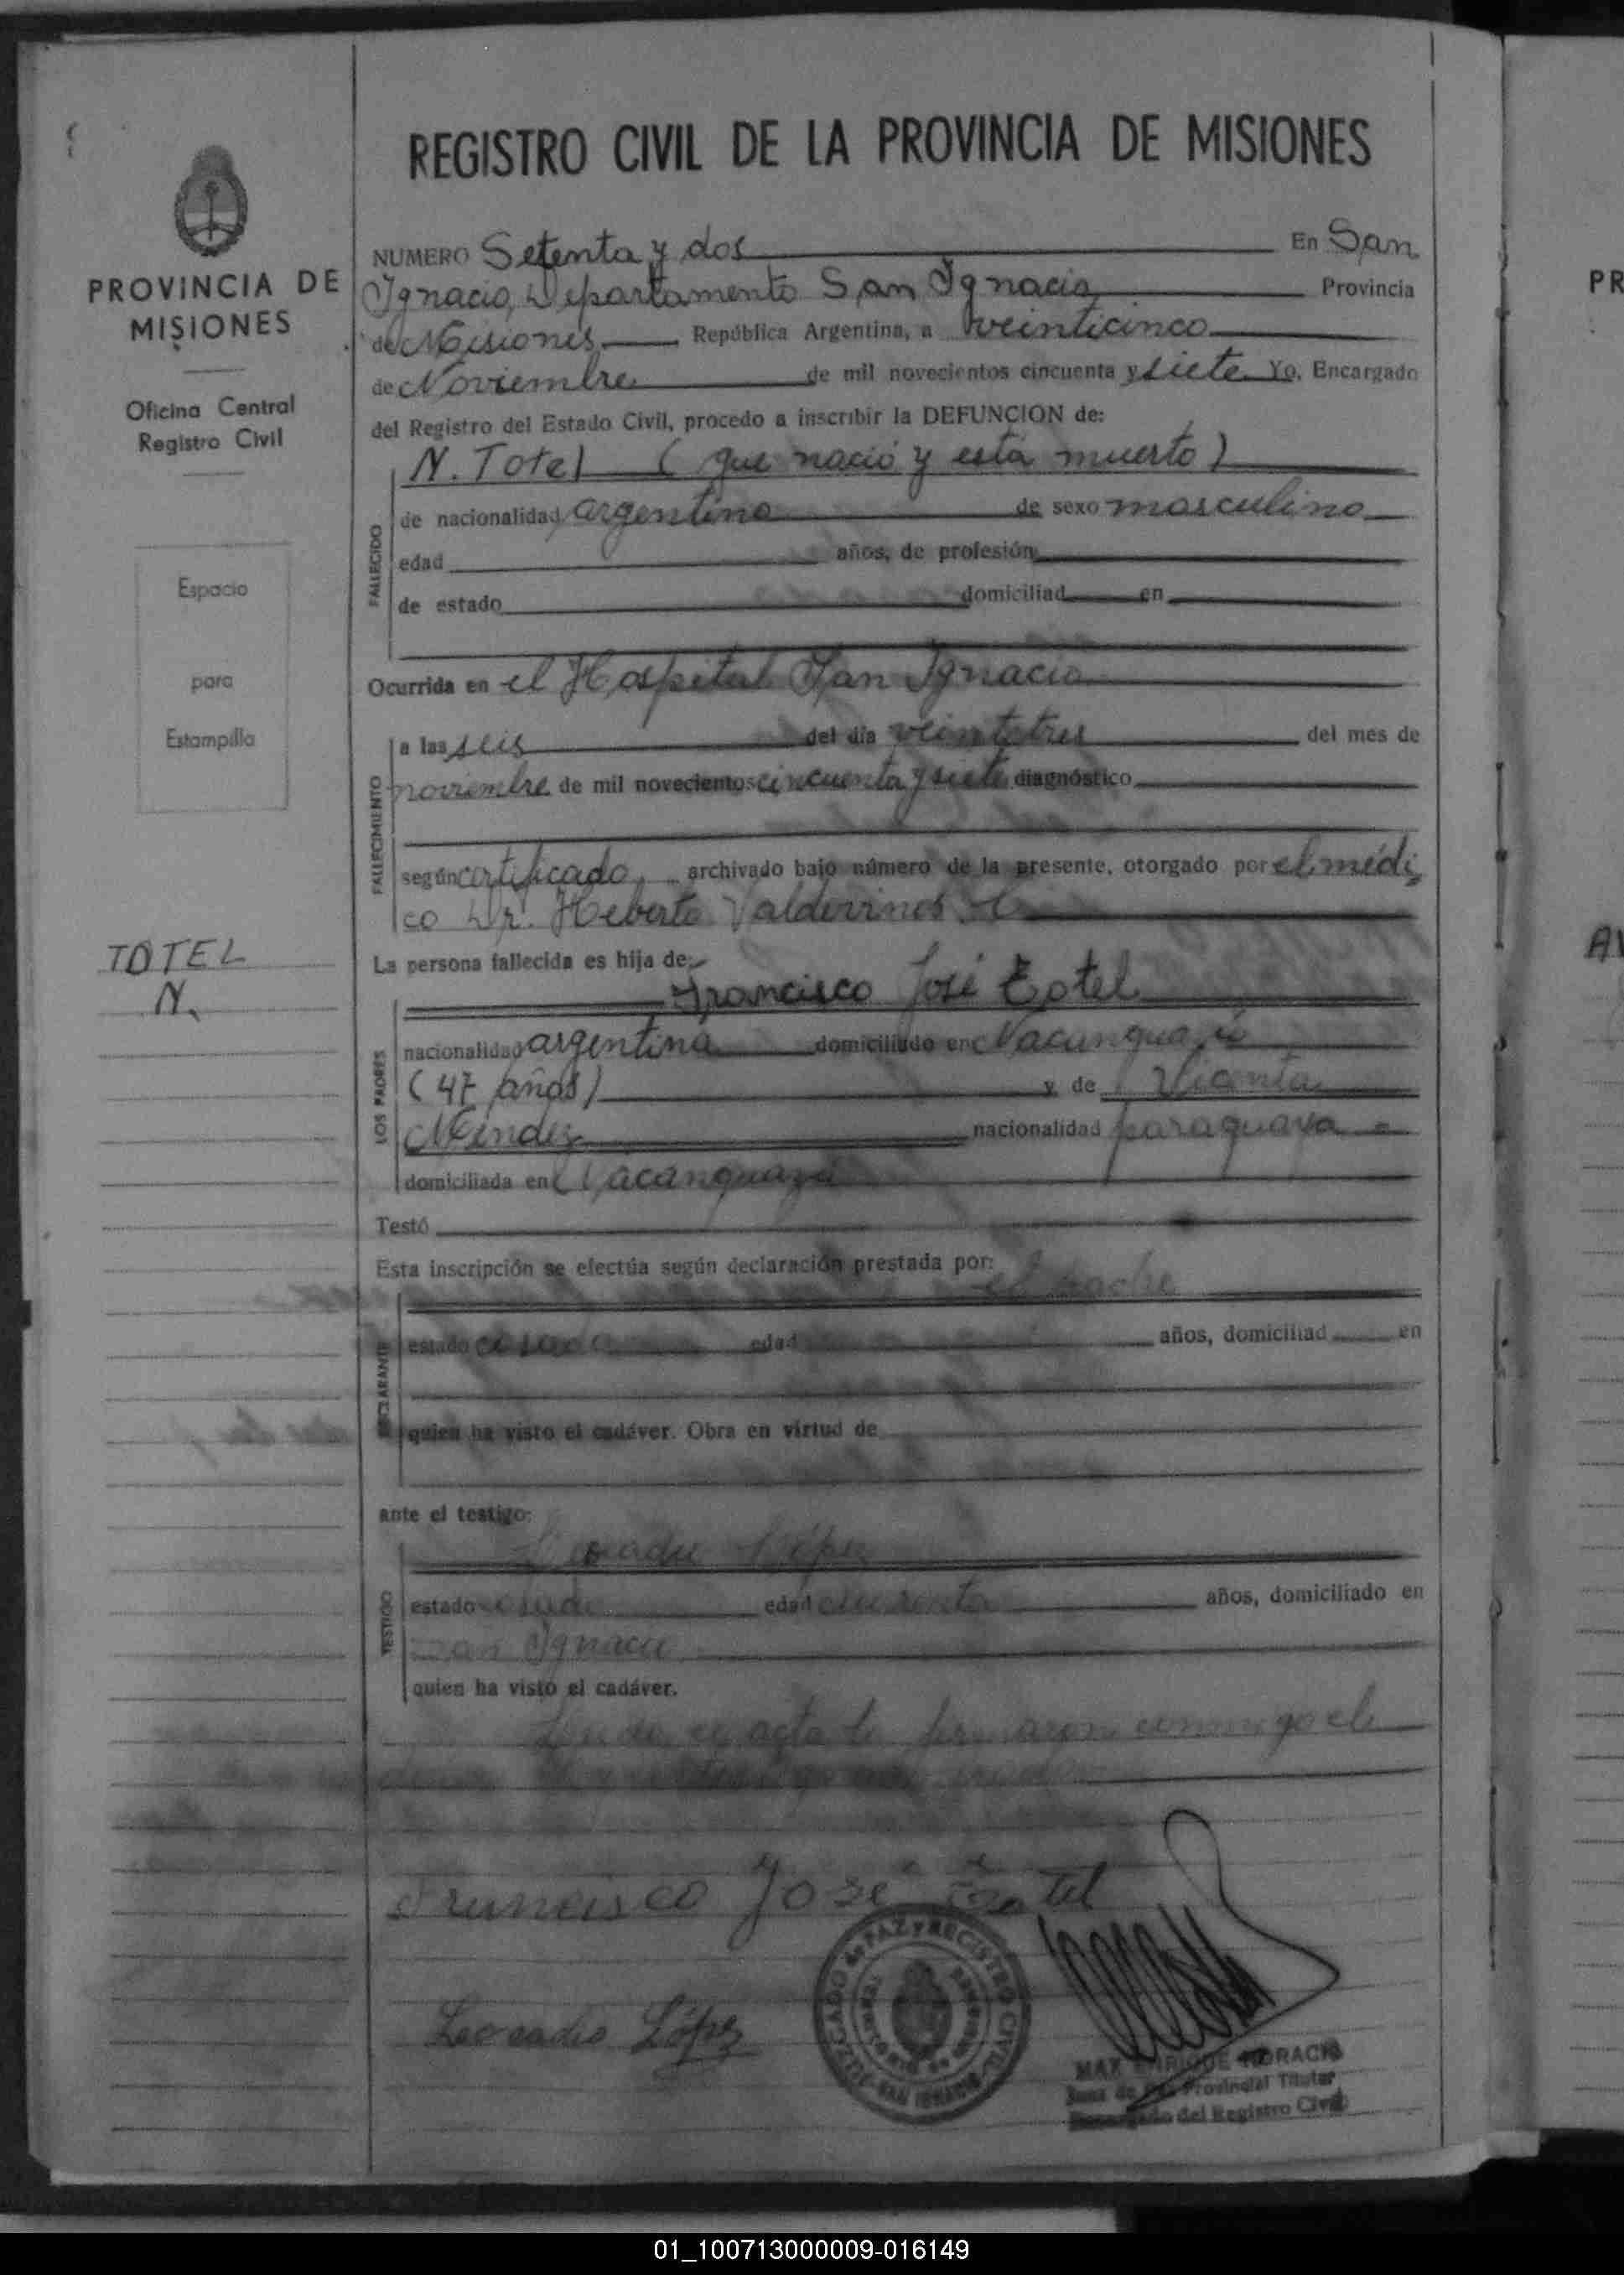 REGISTRO CIVIL DE LA PROVINCIA DE MISIONES
PROVINCIA DE
MISIONES
Oficina Central
Registro Civil
Espacio
para
Estampilla
TOTEL
N.
NUMERO Setenta y dos En San
Ignacio, Departamento San Ignacio Provincia
de Misiones República Argentina, a veinticinco
de Noviembre de mil novecientos cincuenta y siete Yo, Encargado
del Registro del Estado Civil, procedo a inscribir la DEFUNCION de:
FALLECIDO
N. Totel ( que nació y está muerto )
de nacionalidad argentina de sexo masculino
edad años, de profesión
de estado domiciliad en
Ocurrida en el Hospital San Ignacio
FALLECIMIENTO
a las seis del día veintitres del mes de
noviembre de mil novecientos cincuenta y siete diagnóstico
según certificado archivado bajo número de la presente, otorgado por el médi
co Dr. Heberto
La persona fallecida es hija de:
LOS PADRES
Francisco José Totel
nacionalidad argentina domiciliado en
( 47 años ) y de Vicenta
Méndez nacionalidad paraguaya
domiciliada en
Testó
Esta inscripción se efectúa según declaración prestada por:
DECLARANTE
el padre
estado edad años, domiciliad en
quien ha visto el cadáver. Obra en virtud de
ante el testigo:
TESTIGO
Leocadio López
estado edad cuarenta años, domiciliado en
San Ignacio
quien ha visto el cadáver.
acta la firmaron conmigo el
Francisco José Totel
Leocadio López
JUZGADO de PAZ y REGISTRO CIVIL
SAN IGNACIO
MAX ENRIQUE HORACIO
Juez de Paz Provincial Titular
Encargado del Registro Civil
PR
01_100713000009-016149